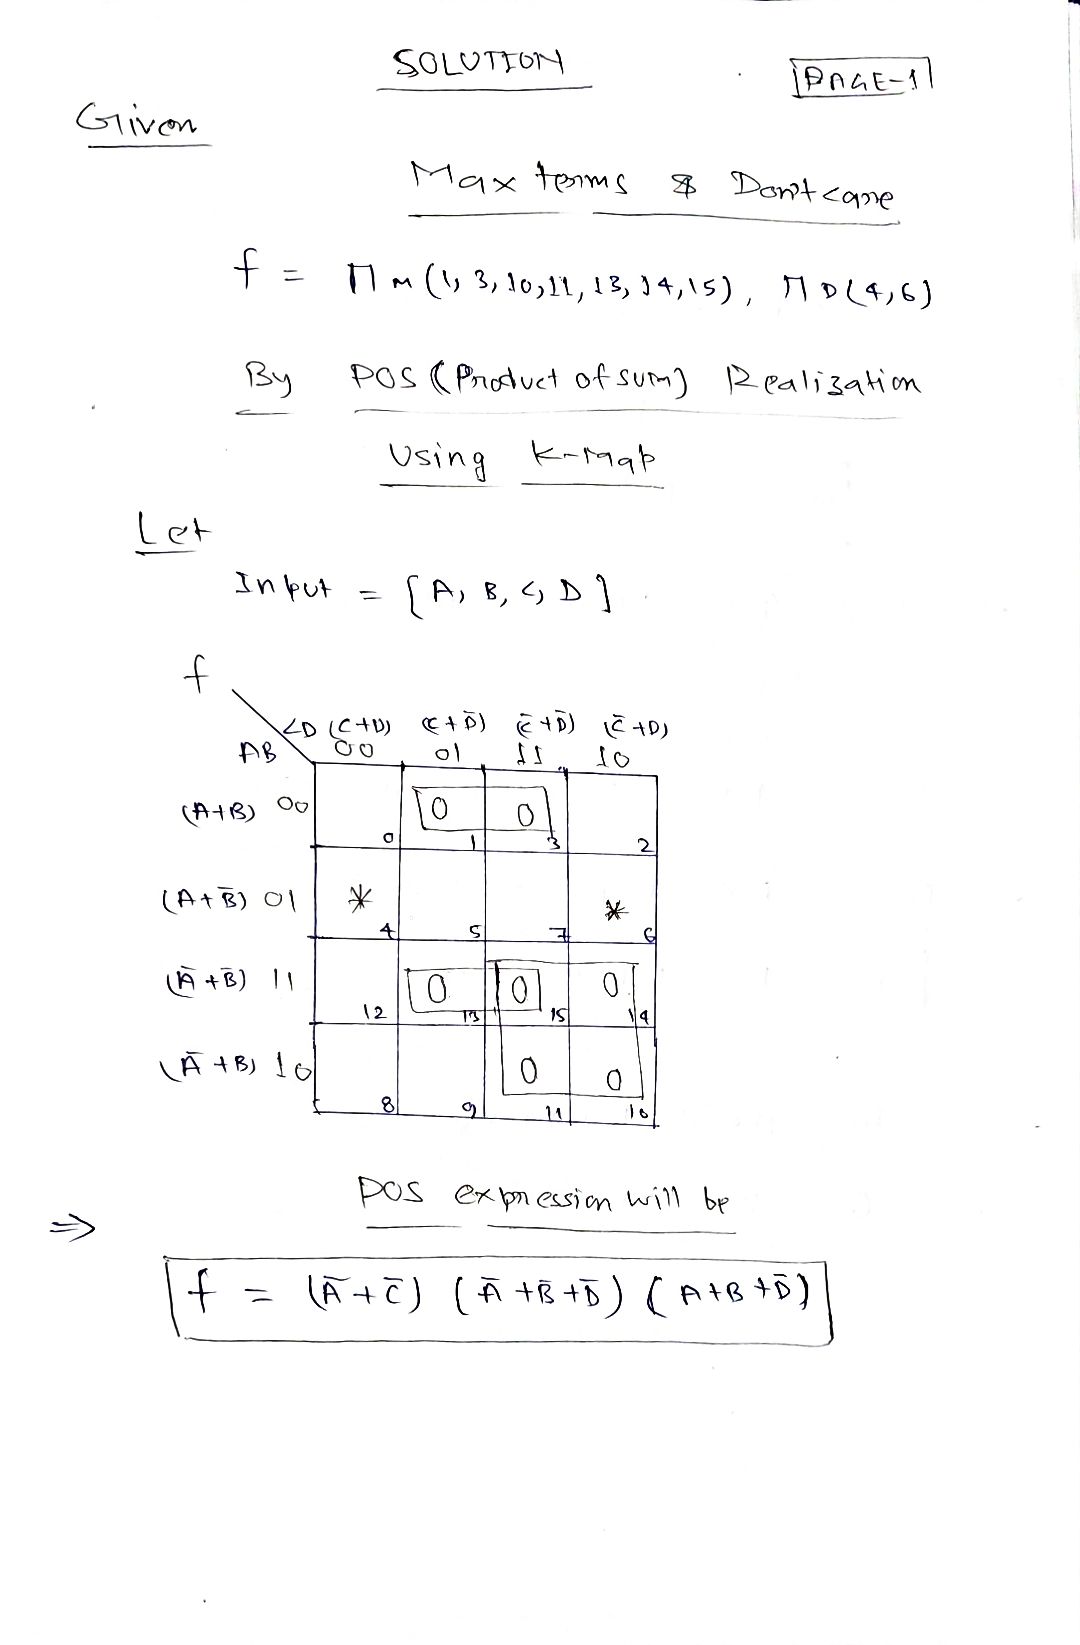 SOLUTION
PAGE-1
Given
Max terms & Don't care
f = Π M (1, 3, 10, 11, 13, 14, 15), Π D (4, 6)
By POS (Product of sum) Realization
Using K-map
Let
Input = {A, B, C, D}
f
CD (C+D) (C+D̄) (C̄+D̄) (C̄+D)
AB 00 01 11 10
(A+B) 00 0 0
0 1 3 2
(A+B̄) 01 * *
4 5 7 6
(Ā+B̄) 11 0 0 0
12 13 15 14
(Ā+B) 10 0 0
8 9 11 10
POS expression will be
⇒
f = (Ā+C̄) (Ā+B̄+D̄) (A+B+D̄)